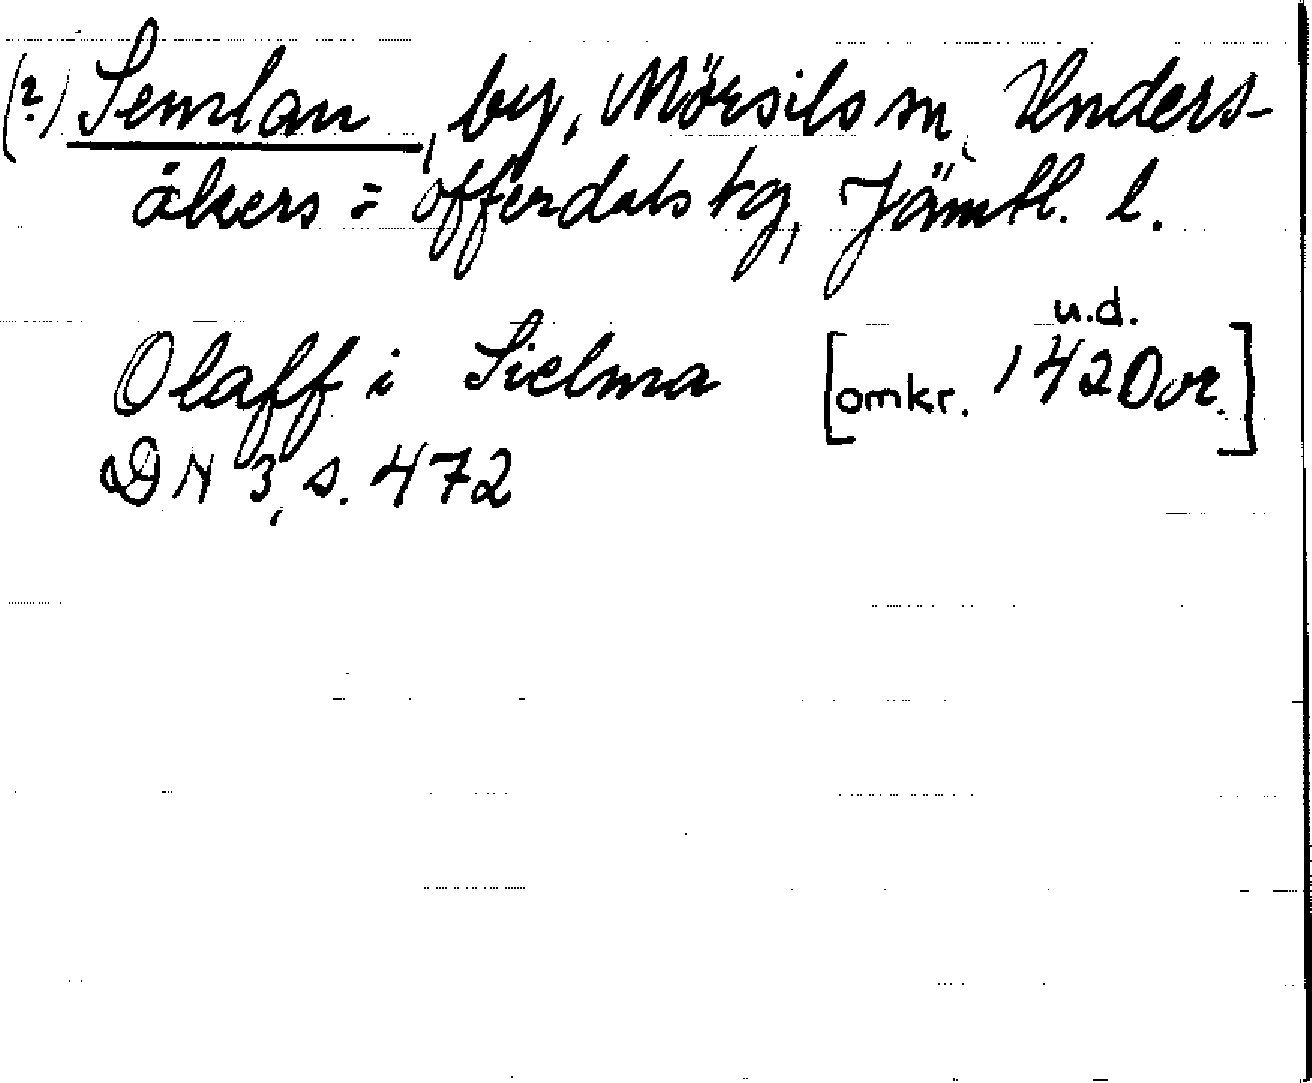 (?) Semlan, by, Mörsils sn, Unders-
åkers = Offerdals tg, Jämtl. l.
u.d.
Olaff i Sielma [omkr. 1420 or.]
DN 3, s. 472